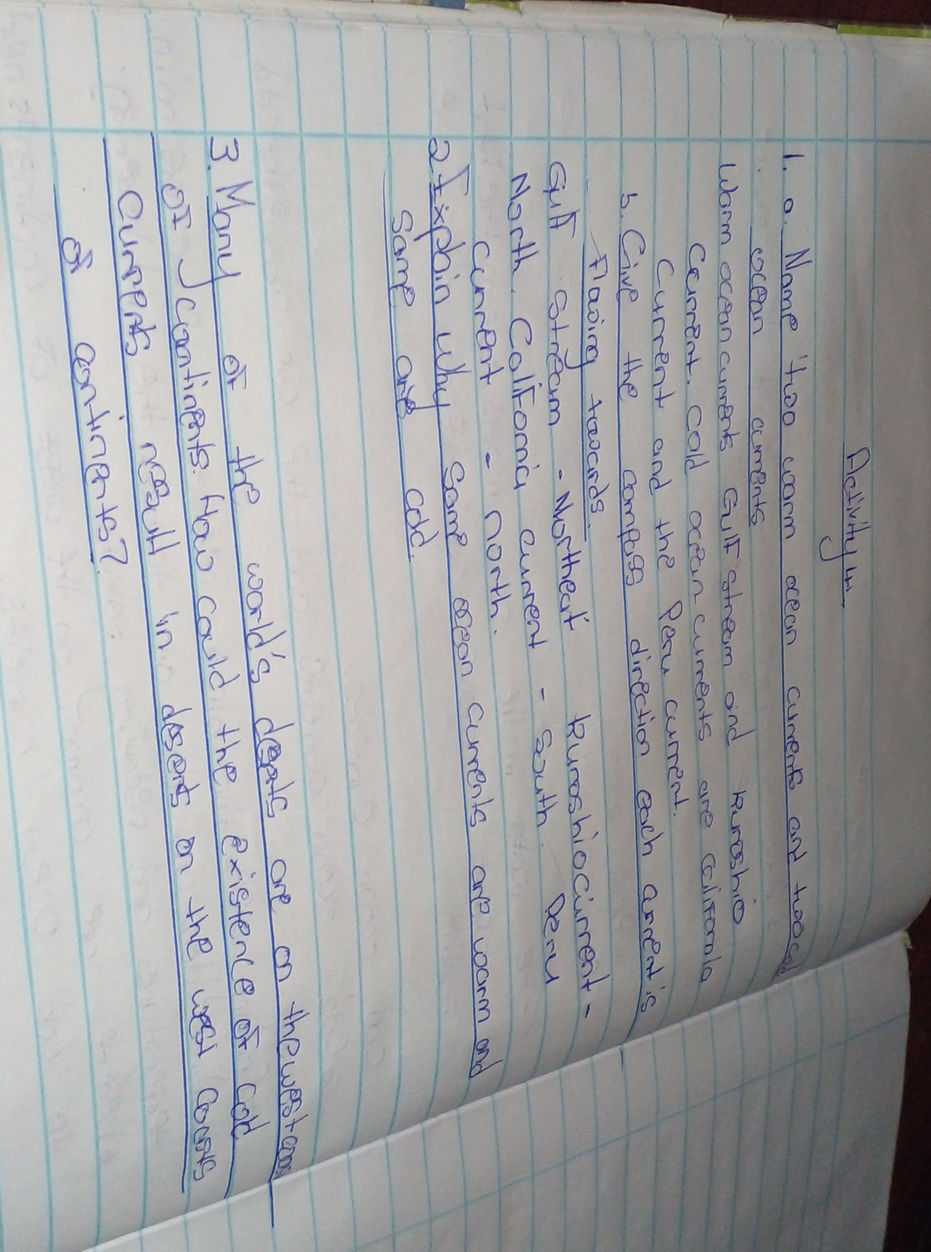 Activity 4.
1. a. Name two warm ocean currents and two cold
ocean currents
Warm ocean currents Gulf stream and kuroshio
Current. Cold ocean currents are california
Current and the Peru current.
b. Give the compass direction each current is
Flowing towards.
Gulf Stream - Northeast kuroshio current -
North. California current - South. Peru
Current - north.
2. Explain why some ocean currents are warm and
Some are cold.
3. Many of the world's deserts are on the west coasts
of continents. How could the existence of cold
Currents result in deserts on the west coasts
of continents?